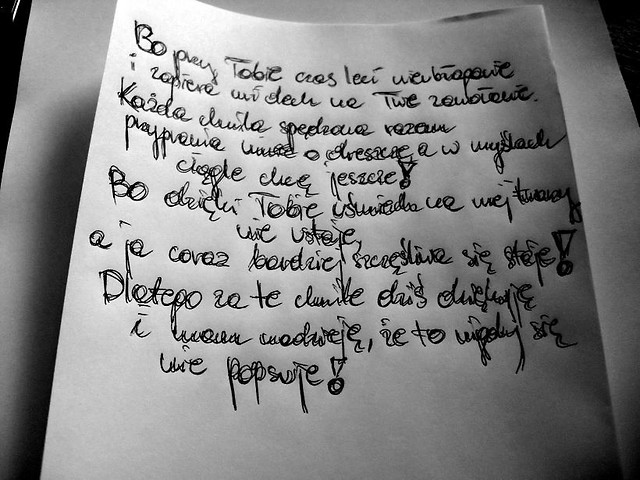 Bo przy Tobie czas leci nieubłaganie
i zapiera mi dech na Twe zawołanie.
Każda chwila spędzona razem
przyprawia mnie o dreszcze, a w myślach
ciągle chcę jeszcze!
Bo dzięki Tobie uśmiech na mej twarzy
nie ustaje,
a ja coraz bardziej szczęśliwa się staję!
Dlatego za te chwile dziś dziękuję
i mam nadzieję, że to nigdy się
nie popsuje!